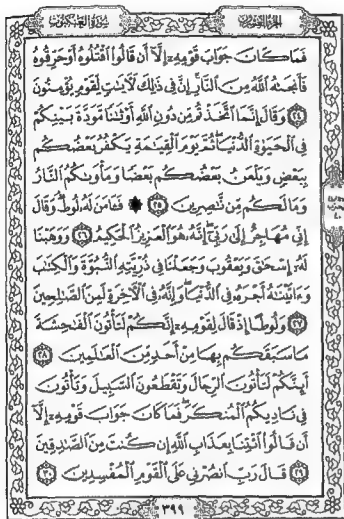 سورة العنكبوت
الجزء العشرون
فَمَا كَانَ جَوَابَ قَوْمِهِۦٓ إِلَّآ أَن قَالُوا۟ ٱقْتُلُوهُ أَوْ حَرِّقُوهُ
فَأَنجَىٰهُ ٱللَّهُ مِنَ ٱلنَّارِ إِنَّ فِى ذَٰلِكَ لَـَٔايَٰتٍ لِّقَوْمٍ يُؤْمِنُونَ
٢٤ وَقَالَ إِنَّمَا ٱتَّخَذْتُم مِّن دُونِ ٱللَّهِ أَوْثَٰنًا مَّوَدَّةَ بَيْنِكُمْ
فِى ٱلْحَيَوٰةِ ٱلدُّنْيَا ثُمَّ يَوْمَ ٱلْقِيَٰمَةِ يَكْفُرُ بَعْضُكُم
بِبَعْضٍ وَيَلْعَنُ بَعْضُكُم بَعْضًا وَمَأْوَىٰكُمُ ٱلنَّارُ
وَمَا لَكُم مِّن نَّٰصِرِينَ ٢٥ فَـَٔامَنَ لَهُۥ لُوطٌ وَقَالَ
إِنِّى مُهَاجِرٌ إِلَىٰ رَبِّىٓ إِنَّهُۥ هُوَ ٱلْعَزِيزُ ٱلْحَكِيمُ ٢٦ وَوَهَبْنَا
لَهُۥٓ إِسْحَٰقَ وَيَعْقُوبَ وَجَعَلْنَا فِى ذُرِّيَّتِهِ ٱلنُّبُوَّةَ وَٱلْكِتَٰبَ
وَءَاتَيْنَٰهُ أَجْرَهُۥ فِى ٱلدُّنْيَا وَإِنَّهُۥ فِى ٱلْـَٔاخِرَةِ لَمِنَ ٱلصَّٰلِحِينَ
٢٧ وَلُوطًا إِذْ قَالَ لِقَوْمِهِۦٓ إِنَّكُمْ لَتَأْتُونَ ٱلْفَٰحِشَةَ
مَا سَبَقَكُم بِهَا مِنْ أَحَدٍ مِّنَ ٱلْعَٰلَمِينَ ٢٨
أَئِنَّكُمْ لَتَأْتُونَ ٱلرِّجَالَ وَتَقْطَعُونَ ٱلسَّبِيلَ وَتَأْتُونَ
فِى نَادِيكُمُ ٱلْمُنكَرَ فَمَا كَانَ جَوَابَ قَوْمِهِۦٓ إِلَّآ
أَن قَالُوا۟ ٱئْتِنَا بِعَذَابِ ٱللَّهِ إِن كُنتَ مِنَ ٱلصَّٰدِقِينَ
٢٩ قَالَ رَبِّ ٱنصُرْنِى عَلَى ٱلْقَوْمِ ٱلْمُفْسِدِينَ ٣٠
٣٩٩